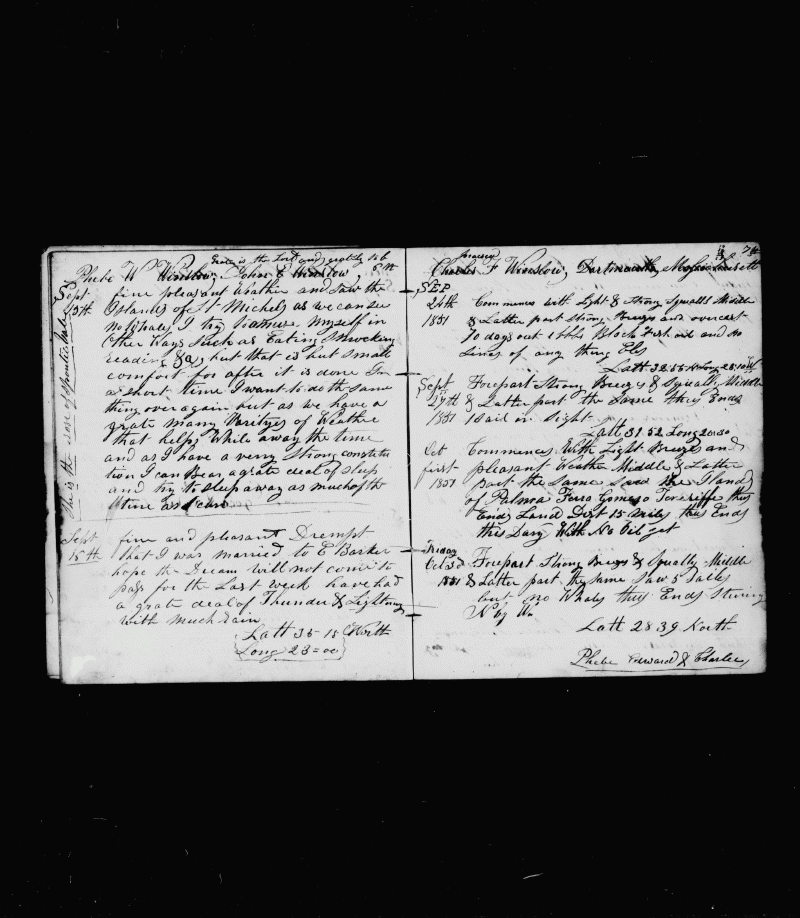 Great is the Lord and greatly to b
Phebe W Winslow, John E Winslow,
Sept 13th fine pleasant Weather and Saw the
Islands of St Michels as we can see
No Whales I try to amuse myself in
Other ways Such as Eating Smoking
reading & a, but that is but Small
comfort for after it is done In
a short time I want to do the same
thing over again but as we have a
grate many Varetyes of Weather
that helps While away the time
and as I have a very Strong constitu
tion I can Bear a grate deal of Sleep
and try to Sleep away as much of the
time as I can
This is the
Sept 15th fine and pleasant Drempt
that I was married to E Barker
hope the Dream will not come to
pass for the Last week have had
a grate deal of Thunder & Lightning
with much rain
Latt 35-18 North
Long 23=00
praised
76
Charles F Winslow, Dartmouth, Massachusetts
SEP
24th Commences with Light & Strong Squalls Middle
1851 & Latter part Strong Breezes and overcast
70 days out 1 bbls Black Fish oil and no
Signes of any thing Els
Latt 32 55 Long
Sept Forepart Strong Breezes & Squally Middle
27th & Latter part the Same thus Ends
1851 1 Sail in Sight
Latt 31 52 Long 20 30
Oct Commences With Light Breezes and
first pleasant Weather Middle & Latter
1851 part the Same Saw the Islands
of Palma Ferro Gomero Teneriffe thus
Ends Land Dist 15 Miles thus Ends
this Day With No Oil yet
Friday
Oct 3d Forepart Strong Breezes & Squally Middle
1851 & Latter part the same Saw 5 Sails
but no Whales thus Ends Stering
N by W
Latt 28 39 North
Phebe Edward & Charles